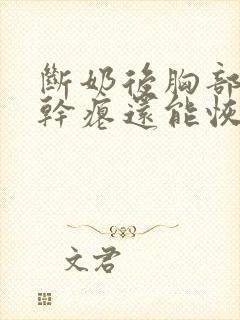 斷奶後胸部
幹癟還能恢
文君